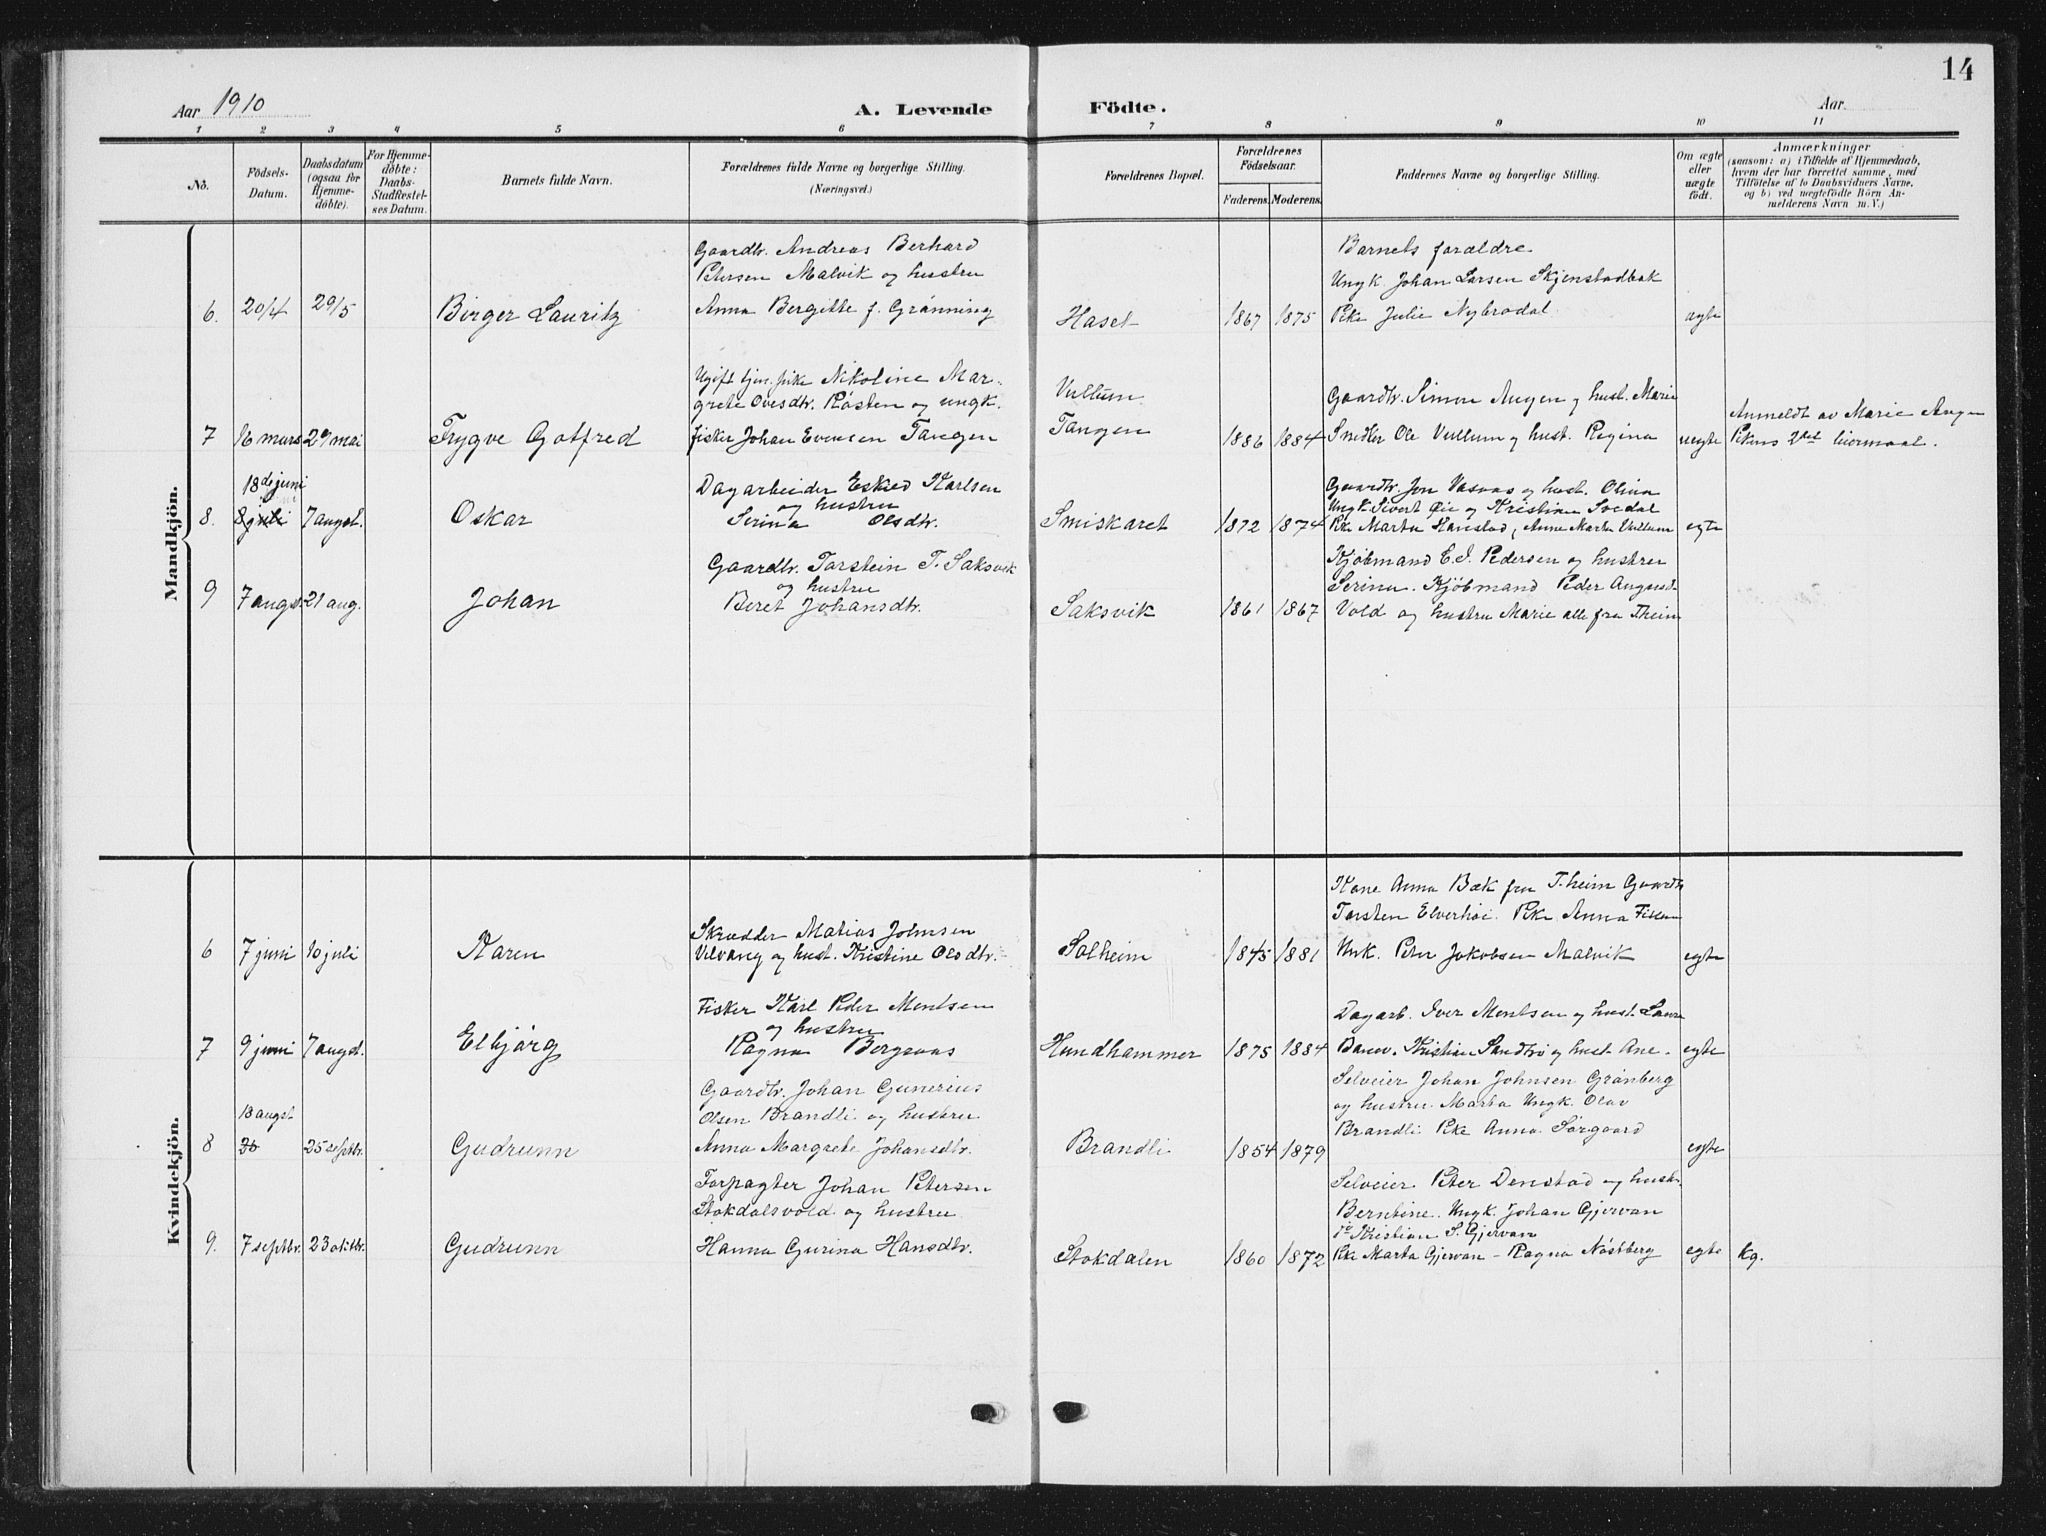 14
Aar 1910
A. Levende Födte.
Aar
1 2 3 4 5 6 7 8 9 10 11
No.
Födsels-Datum.
Daabsdatum (ogsaa for Hjemme-döbte).
For Hjemme-döbte: Daabs-Stadfæstel-ses Datum.
Barnets fulde Navn.
Forældrenes fulde Navne og borgerlige Stilling. (Næringsvei.)
Forældrenes Bopæl.
Forældrenes Födselsaar.
Faderens. Moderens.
Faddernes Navne og borgerlige Stilling.
Om ægte eller uægte födt.
Anmærkninger
(saasom: a) i Tilfælde af Hjemmedaab, hvem der har forrettet samme, med Tilföielse af to Daabsvidners Navne, og b) ved uegtefödte Börn An-melderens Navn m. V.)
Mandkjön.
Gaardbr. Andreas Berhard
Petersen Malvik og hustru
6. 20/4 29/5 Birger Lauritz Anna Bergitte f. Grönning Haset 1867 1875
Barnets forældre
Ungk. Johan Larsen Skjenstadbak
Pike Julie Nybrodal. ægte
Ugift tjen. pike Nikoline Mar-
grete Ovesdtr. Røsten og ungk.
7 16 mars 29 mai Trygve Gotfred fisker Johan Evensen Tangen
Vullum
Tangen 1886 1884
Gaardbr. Simon Augen og hust. Marie
Smedler Ole Vullum og hust. Regina uegte
Anmeldt av Marie Augen
Pikens 2det leiermaal.
18de juni
8. 8 juli 7 augst. Oskar
Dagarbeider Eskied Karlsen
og hustru
Serina Olsdtr. Smiskaret 1872 1874
Gaardbr. Jon Vasaas og hust. Olina
Ungk. Sivert Øie og Kristian Svedal
Pke Marta Hanstad, Anne Marta Vullum egte
9 7 augst. 21 aug. Johan
Gaardbr. Torstein T. Saksvik
og hustru
Beret Johansdtr. Saksvik 1861 1867
Kjöbmand E. I. Pedersen og hustru
Serina. Kjöbmand Peder August
Vold og hustru Marie alle fra Theim
Kvindekjön.
6 7 juni 10 juli Karen
Skrædder Matias Johnsen
Vilvang og hust. Kristine Olsdtr. Solheim 1845 1881
Kone Anna Bæk fra T.heim Gaardb
Torsten Elverhöi. Pike Anna
Unk. Peter Jakobsen Malvik egte
7 9 juni 7 augst. Elbjörg
Fisker Karl Peder Mentsen
og hustru
Ragna Bergsaas Hundhammer 1875 1884
Dagarb. Iver Mentsen og hust. Laura
Banev. Kristian Sandbro og hust Ane. egte
13 augst
8 20 25 septbr. Gudrunn
Gaardbr. Johan Gunerius
Olsen Brandli og hustru
Anna Margrete Johansdtr. Brandli 1854 1879
Selveier Johan Johnsen Grönberg
og hustru. Marta Ungk. Olav
Brandli Pike Anna Sörgaard
egte
9. 7 septbr. 23 oktbr. Gudrunn
Forpagter Johan Petersen
Stokdalsvold og hustru
Hanna Gurina Hansdtr. Stokdalen 1860 1872
Selveier Peter Denstad og hust.
Berntine. Ungk. Johan Gjervan
do Kristian S. Gjervan
Pke Marta Gjervan – Ragna Nöstberg egte Kg.